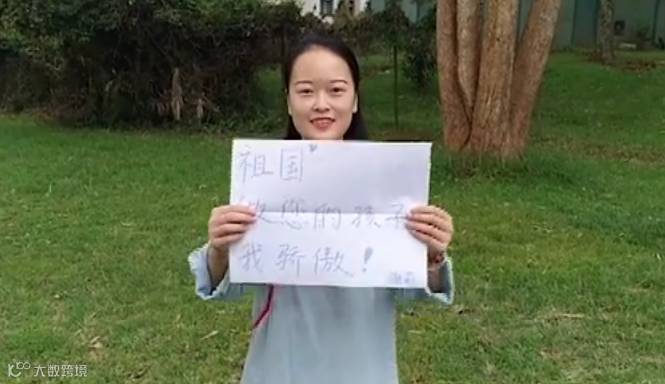 祖国
做您的孩子
我骄傲！
大数跨境